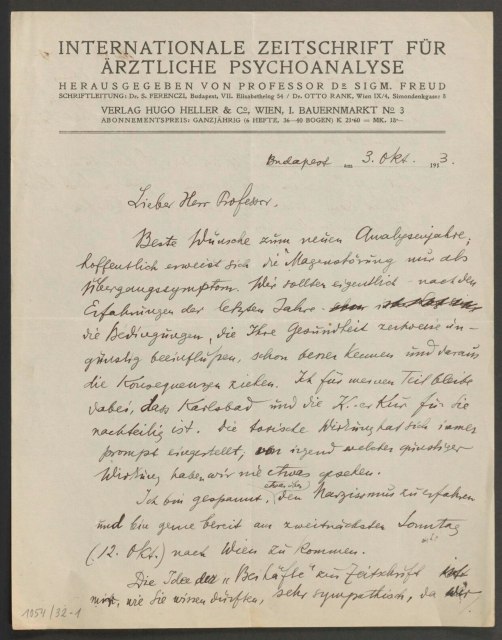 INTERNATIONALE ZEITSCHRIFT FÜR
ÄRZTLICHE PSYCHOANALYSE
HERAUSGEGEBEN VON PROFESSOR DR SIGM. FREUD
SCHRIFTLEITUNG: Dr. S. FERENCZI, Budapest, VII. Elisabethring 54 / Dr. OTTO RANK, Wien IX/4, Simondenkgasse 8
VERLAG HUGO HELLER & Co, WIEN, I. BAUERNMARKT No 3
ABONNEMENTSPREIS: GANZJÄHRIG (6 HEFTE, 36—40 BOGEN) K 21·60 = MK. 18·—
Budapest am 3. Okt. 1913.
Lieber Herr Professor,
Beste Wünsche zum neuen Analysenjahre;
hoffentlich erweist sich die Magenstörung nur als
Übergangssymptom. Wir sollten eigentlich - nach den
Erfahrungen der letzten Jahre -
die Bedingungen, die Ihre Gesundheit zeitweise un-
günstig beeinflußen, schon besser kennen und daraus
die Konsequenzen ziehen. Ich für meinen Teil bleibe
dabei, dass Karlsbad und die K.-er Kur für Sie
nachteilig ist. Die toxische Wirkung hat sich immer
prompt eingestellt, von irgend welcher günstiger
Wirkung haben wir nie etwas gesehen.
Ich bin gespannt, etwas über den Narzissmus zu erfahren
und bin gerne bereit am zweitnächsten Sonntag
(12. Okt.) nach Wien zu kommen.
Die Idee der „Beihefte" zur Zeitschrift ist
mir, wie Sie wissen dürften, sehr sympathisch, da wir
1054/32-1